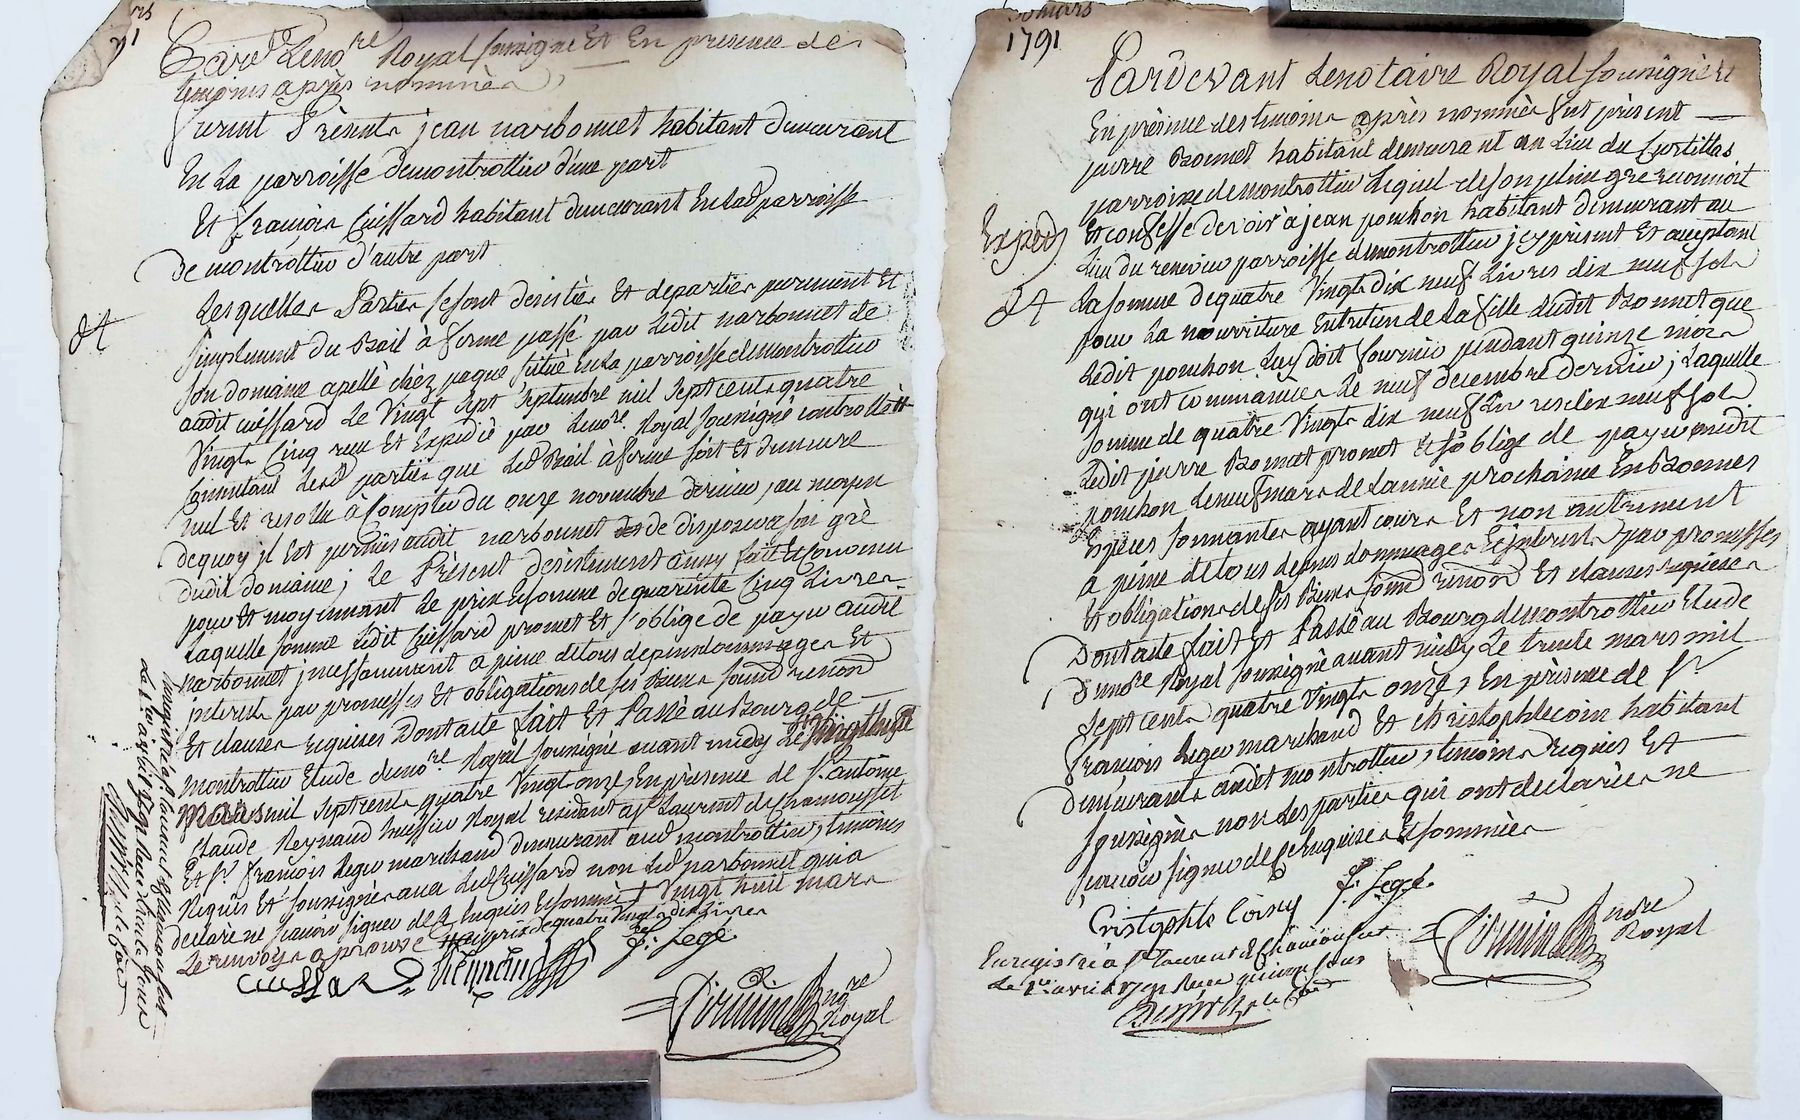 rs
91
Pardt Lenore Royal soussigné Et En presence des
temoins après nommés
furent Présents jean narbonnet habitant demeurant
En La parroisse demontrottier d'une part
Et françois Cuissard habitant demeurant En lad parroisse
De montrottier d'autre part
Lesquelles Parties se sont desistées Et departies purement Et
simplement du Bail à ferme passé par Ledit narbonnet de
son domaine apellé chéz paque situé en La parroisse de montrottier
audit cuissard Le Vingt sept septembre mil sept cents quatre
Vingt Cinq reçu Et Expedié par Lenore Royal soussigné controllé
Consentant Lesd parties que Led Bail à ferme soit Et demeure
nul Et resolu à Compter du onze novembre dernier, au moyen
dequoy il Est permis audit narbonnet de disposer a son gré
dudit domaine; Le Présent desistement ainsy fait Et Convenu
pour Et moyennant Le prix Et somme de quarante Cinq Livres
Laquelle somme Ledit Cuissard promet Et s'oblige de payer audit
narbonnet incessamment a peine de tous depens dommages Et
interets par promesses Et obligations de ses Biens soumd renond
Et clauses requises Dont acte fait Et Passé au Bourg de
montrottier Etude dunore Royal soussigné avant midy Le Vingt huit
mars mil sept cents quatre Vingt onze, En présence de Sr antoine
claude Reynaud huissier Royal residant a St Laurent de chamousset
Et Sr françois Legey marchand demeurant aud montrottier, temoins
Requis Et soussignés avec Led Cuissard non Led narbonnet qui a
declaré ne sçavoir signer de ce Enquis Et sommé Vingt huit mars
Le renvoy approuvé du prix de quatre vingt dix Livres
cuissard Reynaud f: Legé
nore
Royal
Enregistré a St Laurent de chamousset
Le 1er avril 1791 Reçu quinze sous
30 mars
1791
Pardevant Lenotaire Royal soussigné Et
En présence des temoins après nommés fut présent
pierre Bonnet habitant demeurant au Lieu du Curtillas
parroisse de montrottier Lequel de son plein gré reconnoit
Exped
Et confesse devoir à jean ponchon habitant demeurant au
Lieu du renevier parroisse de montrottier icy présent Et acceptant
La somme de quatre Vingt Dix neuf Livres dix neuf sols
pour La nourriture Entretien de La fille dudit Bonnet que
Ledit ponchon Luy doit fournir pendant quinze mois
qui ont commancés Le neuf decembre dernier; Laquelle
somme de quatre Vingts dix neuf Livres dix neuf sols
Ledit pierre Bonnet promet Et s'oblige de payer audit
ponchon Le neuf mars de L'année prochaine En Bonnes
Especes sonnantes ayant cours Et non autrement
a peine de tous depens dommages Et interets, par promesses
Et obligations de ses Biens soumd renond Et clauses requises
Dont acte fait Et Passé au Bourg de montrottier Etude
Dunore Royal soussigné avant midy Le trente mars mil
sept cents quatre Vingts onze, En présence de Sr
françois Legey marchand Et christophle coin habitant
Demeurants audit montrottier, temoins Requis Et
soussignés non Les parties qui ont declarées ne
sçavoir signer de ce Enquises Et sommées
Cristophle Coiny f: Legé
nore
Royal
Enregistré à St Laurent de Chamousset
Le 1er avril 1791 Reçu quinze sous